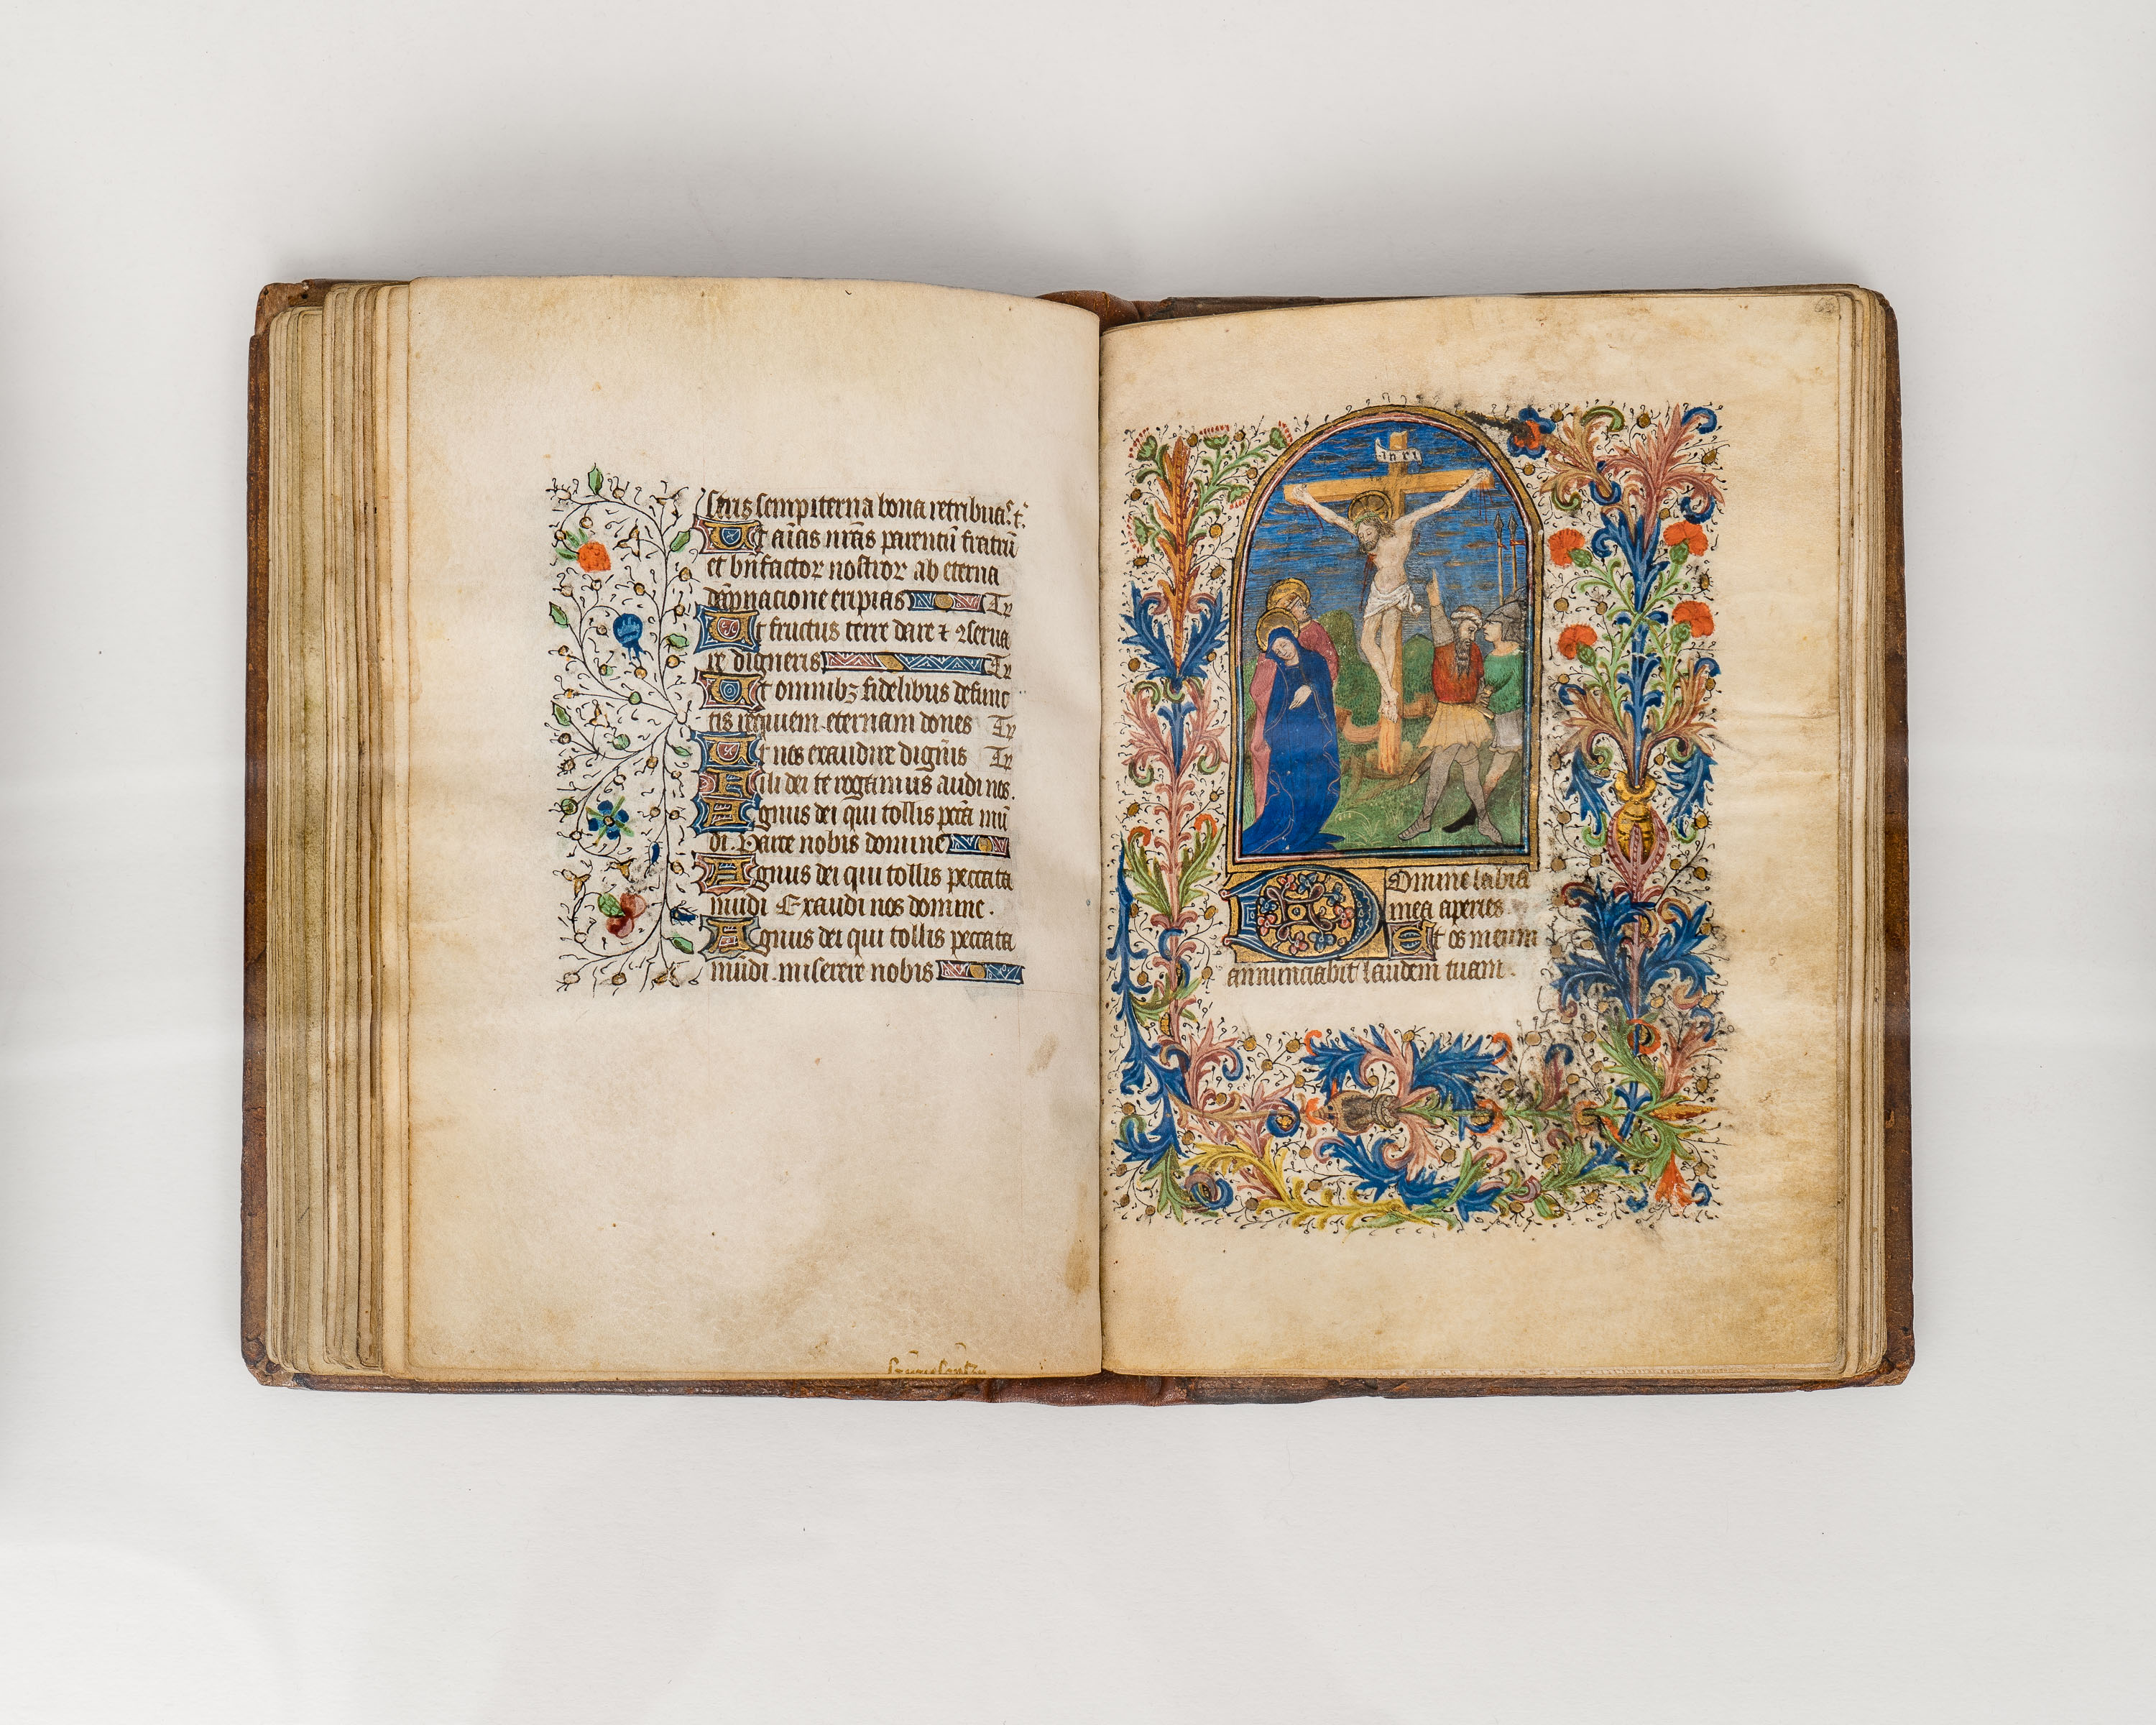 stris sempiterna bona retribuas. t͛.
Ut aīas nr̄as parentū fratrū
et bn̄factor nostror ab eterna
dāpnacione eripias Tr
Ut fructus terre dare ⁊ ꝯserua
re digneris Tr
Ut omnibꝫ fidelibus defunc
tis requiem eternam dones Tr
Ut nos exaudire dign̄is Tr
Fili dei te rogamus audi nos.
Agnus dei qui tollis pctā mū
di. Parce nobis domine
Agnus dei qui tollis peccata
mundi Exaudi nos domine.
Agnus dei qui tollis peccata
mundi. miserere nobis
inri
Domine labia
mea aperies.
Et os meum
annunciabit laudem tuam.